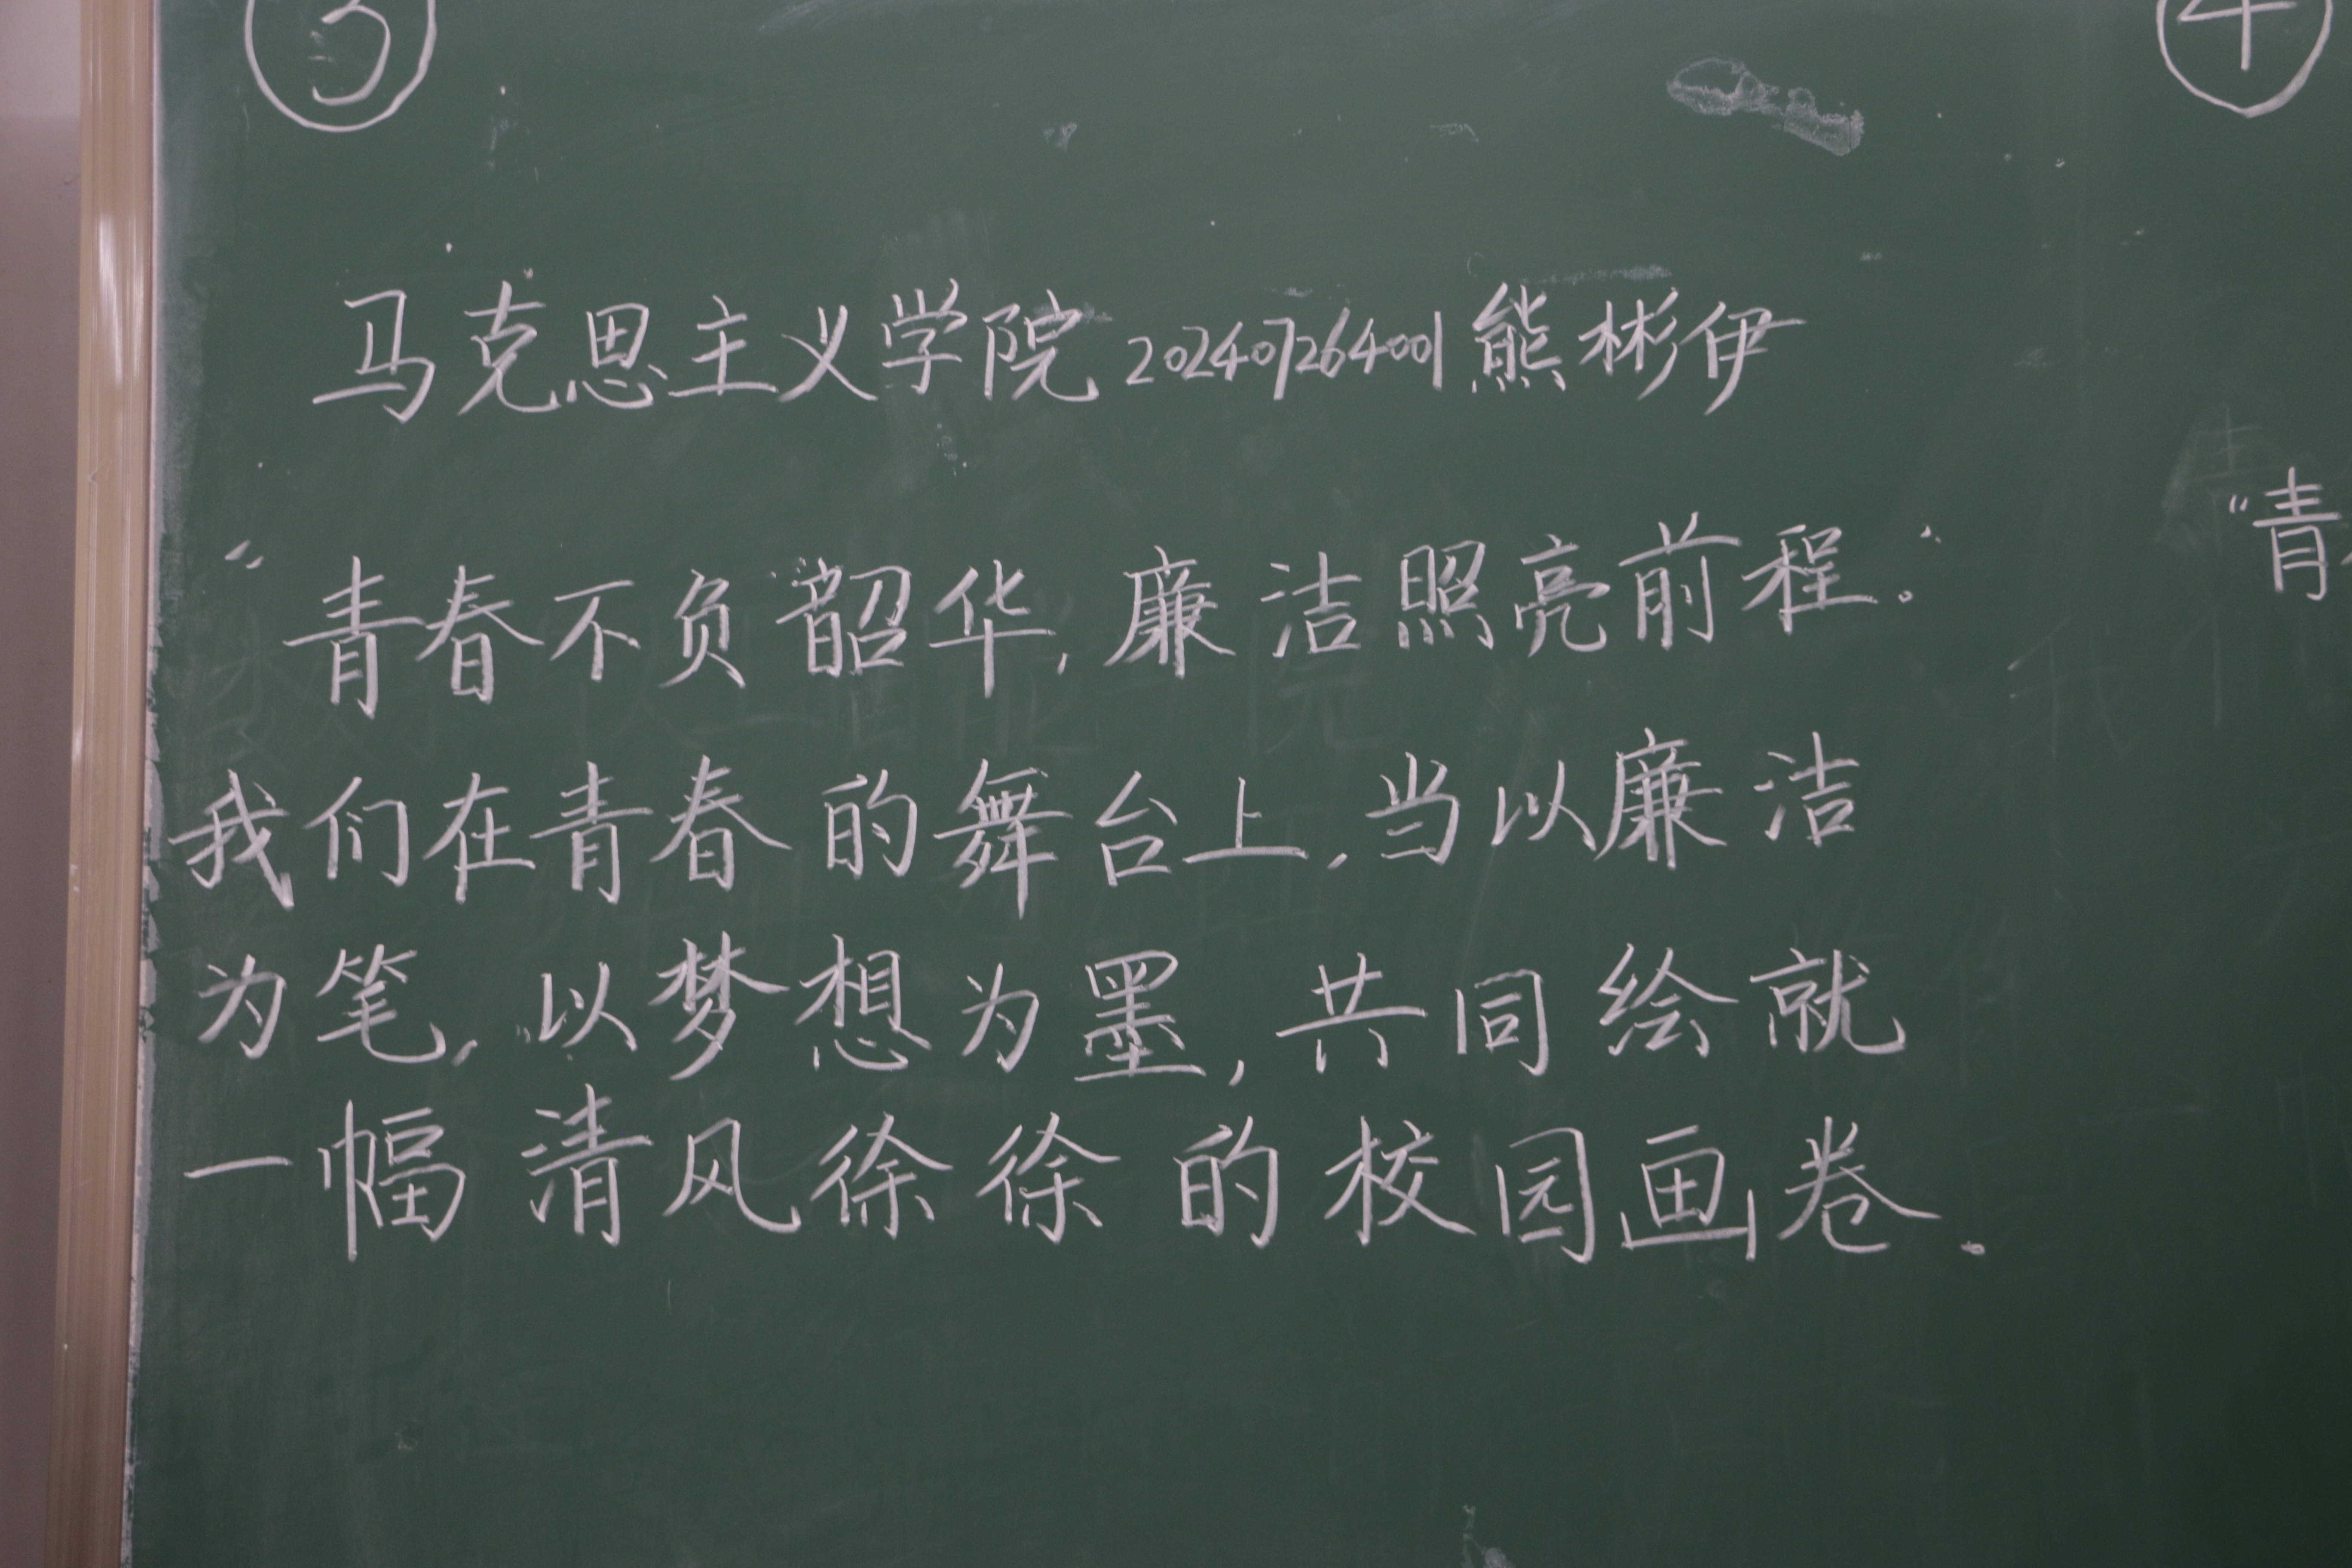 ③
④
马克思主义学院 202407264001 熊彬伊
“青春不负韶华,廉洁照亮前程。”
“青
我们在青春的舞台上,当以廉洁
为笔,以梦想为墨,共同绘就
一幅清风徐徐的校园画卷.